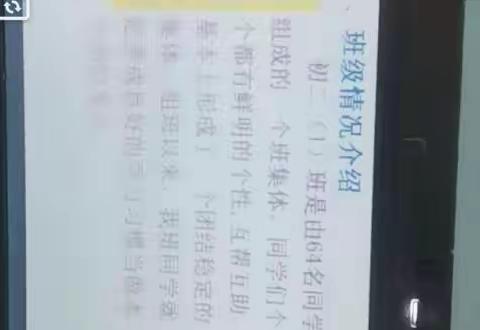 、班级情况介绍
初二（1）班是由64名同学
组成的一个班集体。同学们个
个都有鲜明的个性,互帮互助
基本上形成了一个团结稳定的
集体。组班以来，我班同学就